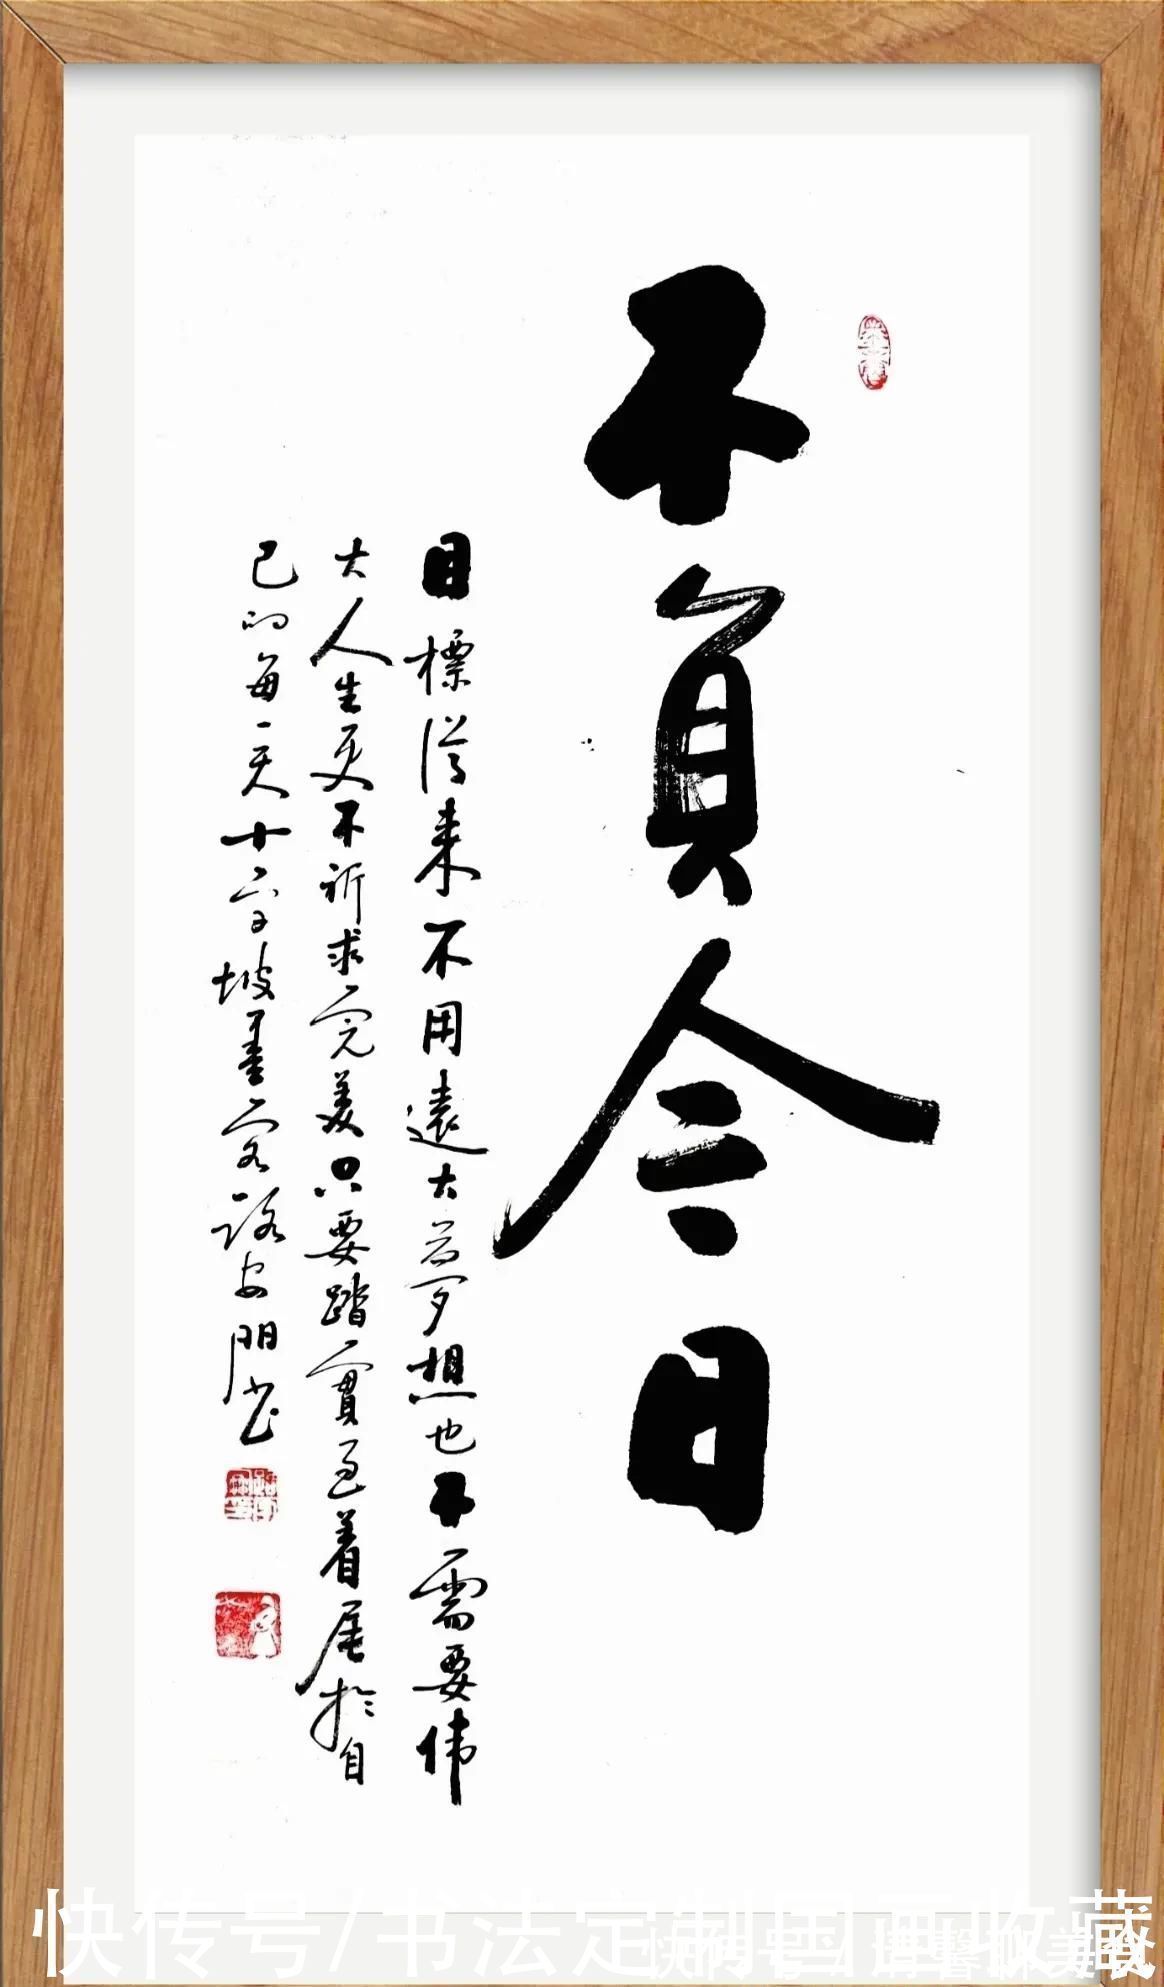 不負今日
目標從来不用遠大夢想也不需要伟
大人生更不祈求完美只要踏實過着属於自
己的每一天十字坡墨客路安书
快传号/书法定制国画收藏